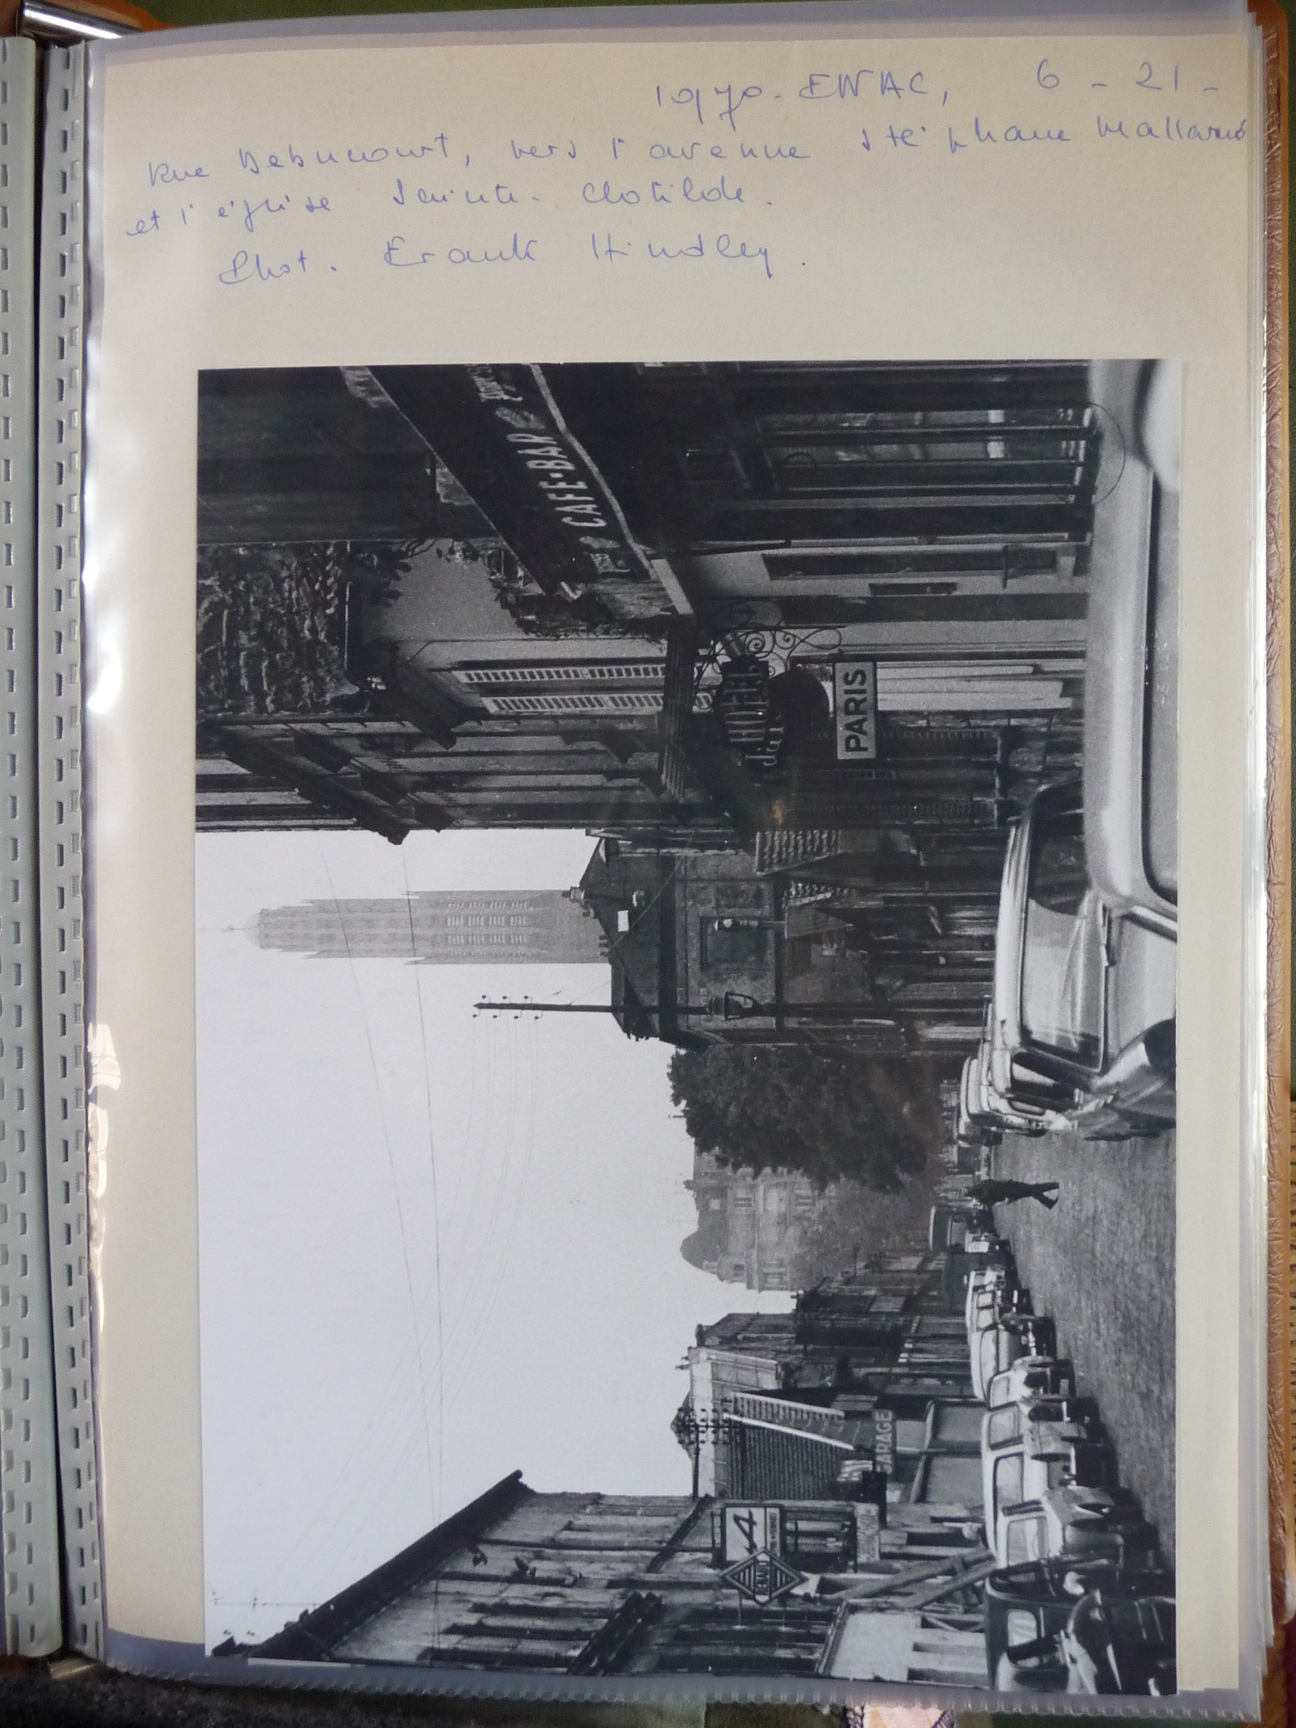 1970 - ENAC, 6 - 21 -
Rue Debucourt, vers l'avenue Stéphane Mallarmé
et l'église Sainte-Clotilde.
Phot. Frank Hindley.
CAFE-BAR
PARIS
GARAGE
4
RENAULT